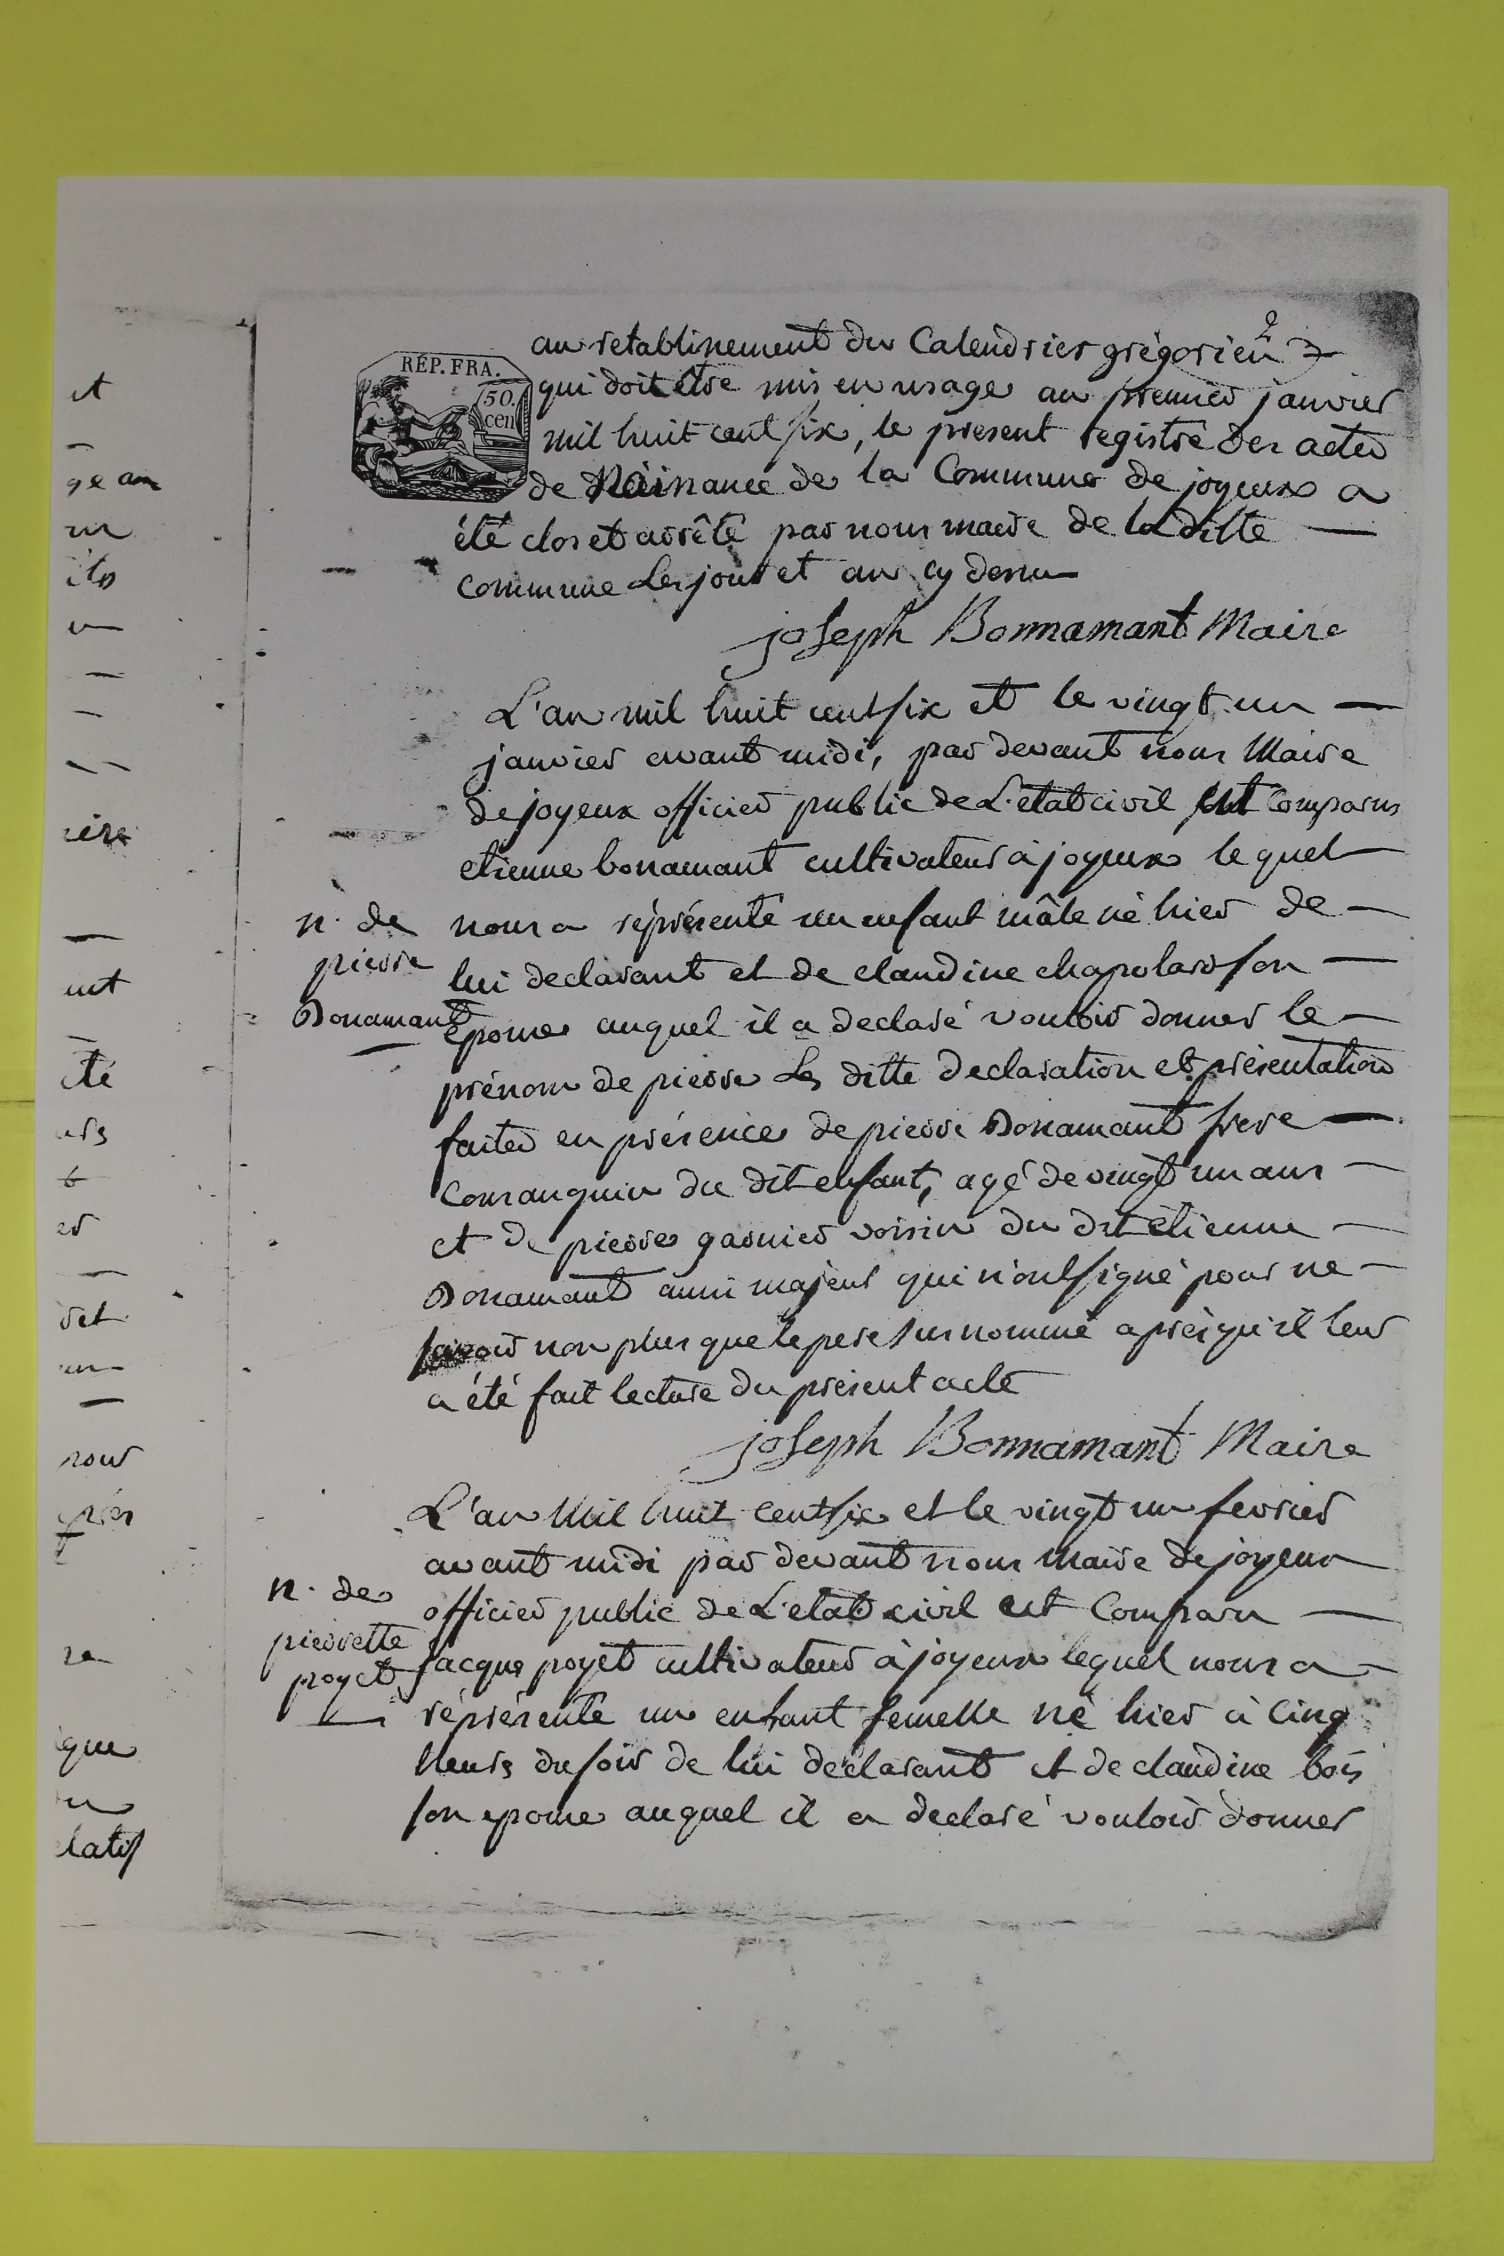 2
au retablissement du Calendrier grégorien
RÉP. FRA.
50.
cen
qui doit être mis en usage au premier janvier
mil huit cent six, le present registre des actes
de Naissance de la Commune de joyeux a
été clos et arrêté par nous maire de la ditte
commune les jour et an cy dessus
joseph Bonnamant Maire
L'an mil huit cent six et le vingt un
janvier avant midi, par devant nous Maire
de joyeux officier public de L'etat civil est Comparus
etienne bonamant cultivateur à joyeux le quel
n. de
pierre
Bonamant
nous a réprésenté un enfant mâle né hier de
lui declarant et de claudine chapolard son
epouse auquel il a declaré vouloir donner le
prénom de pierre Les ditte declaration et présentation
faites en présence de pierre Bonamant frere
consanguin du dit enfant, agé de vingt un ans
et de pierre garnier voisin du dit etienne
Bonamant aussi majeur qui n'ont signé pour ne
savoir non plus que le pere sus nommé après qu'il leur
a été fait lecture du présent acte
joseph Bonnamant Maire
L'an Mil huit Cent six et le vingt un fevrier
avant midi par devant nous Maire de joyeux
officier public de L'etat civil est Comparu
n. de
pierrette
poyet
jacque poyet cultivateur à joyeux lequel nous a
réprésenté un enfant femelle né hier à cinq
heurs du soir de lui declarant et de claudine bois
son epouse auquel il a declaré vouloir donner
et
été
nous
latif